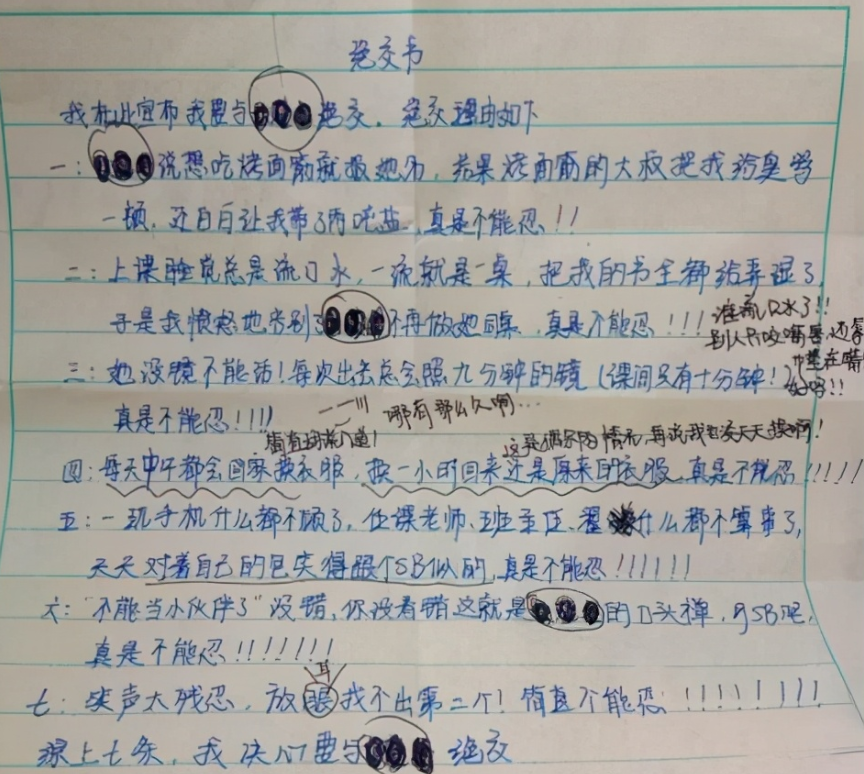 绝交书
我在此宣布我要与绝交。绝交理由如下
一：说想吃烤面筋就报她的，结果烤面筋的大叔把我给臭骂
一顿，还白白让我带了两吨盐，真是不能忍!!
二：上课睡觉总是流口水，一流就是一桌，把我的书全都给弄湿了，
于是我愤怒地告别不再做她同桌，真是不能忍!!!
谁流口水了!!
别人只咬嘴唇，还
在嘴
好吗!!
三：她没镜不能活!每次出去总会照九分钟的镜(课间只有十分钟!)
真是不能忍!!!!
哪有那么久啊…
简直胡说八道!
这是偶尔的情况，再说我也没天天换啊!
四：每天中午都会回家换衣服，换一小时回来还是原来的衣服，真是不能忍!!!!!
五：一玩手机什么都不顾了，任课老师、班主任、什么都不算事了，
天天对着自己的包笑得跟个SB似的，真是不能忍!!!!!!
六："不能当小伙伴了"没错，你没看错这就是的口头禅，多SB呢，
真是不能忍!!!!!!!
耳
七：笑声太残忍，放眼我找不出第二个!简直不能忍!!!!!!!!
综上七条，我决心要与绝交